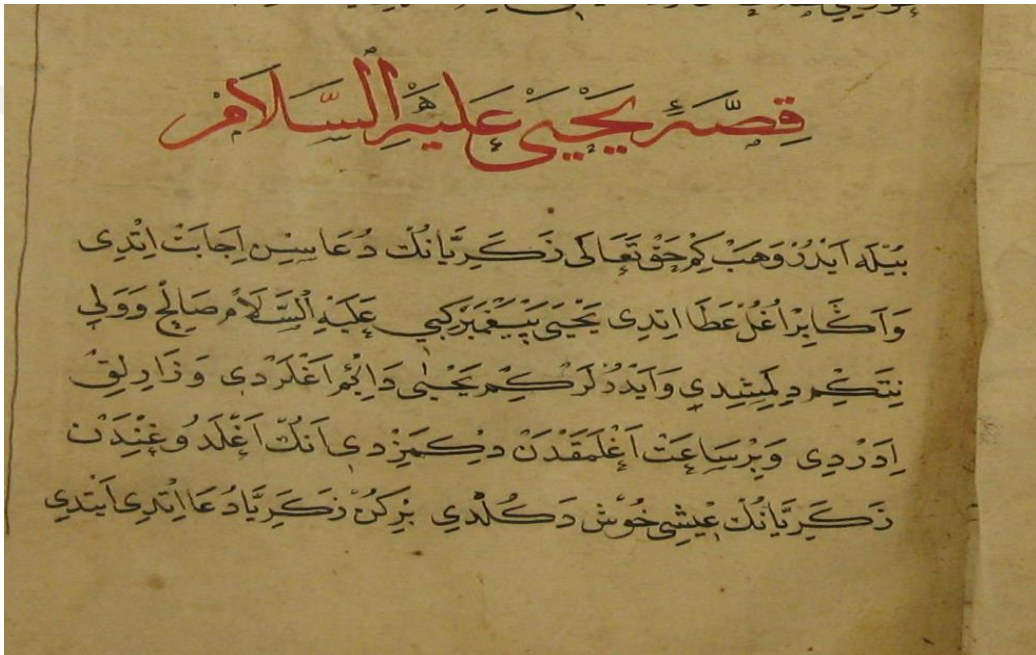 قِصَّهِٔ يَحْيَىٰ عَلَيْهِ السَّلَامْ
بُيْلَه اَيْدُرْ وَهَبْ كِمْ حَقْ تَعَالَى زَكَرِيَّانُكْ دُعَاسِنِ اِجَابَتْ اِتْدِى
وَاَكَا بِرْ اُغُلْ عَطَا اِتدِى يَحْيَى پَيْغَمْبَرْ كِبِي عَلَيْهِ السَّلَامْ صَالِحْ وَوَلِي
نِتَكِمْ دِلَمِشِدِي وَاَيْدُرْلَرْ كِمْ يَحْيَى دَائِمْ اَغْلَرْدِي وَزَارِلِقْ
اِدَرْدِى وَبِرْ سَاعَتْ اَغْلَمَقْدَنْ دِكْمَزْدِي اَنُكْ اَغْلَدُوغِنْدَنْ
زَكَرِيَّانُكْ عَيْشِى خُوشْ دَكُلْدِي بِرْ كُنْ زَكَرِيَّا دُعَا اِتْدِى اَيْتدِي